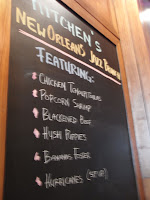 KITCHEN'S
NEW ORLEANS JAZZ
FEATURING:
CHICKEN TCHOUPITOULAS
POPCORN SHRIMP
BLACKENED BEEF
HUSH PUPPIES
BANANAS FOSTER
HURRICANES